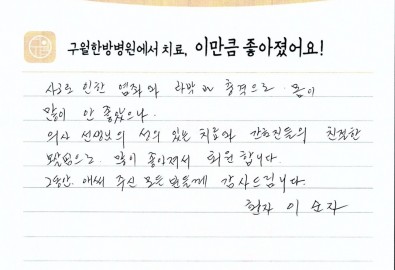 구월한방병원에서 치료, 이만큼 좋아졌어요!
사고로 인한 염좌와 타박 및 충격으로 몸이
많이 안 좋았으나.
의사 선생님의 성의 있는 치료와 간호진들의 친절한
보살핌으로. 많이 좋아져서 퇴원 합니다.
그동안. 애써 주신 모든 분들께 감사드립니다.
환자 이 순자